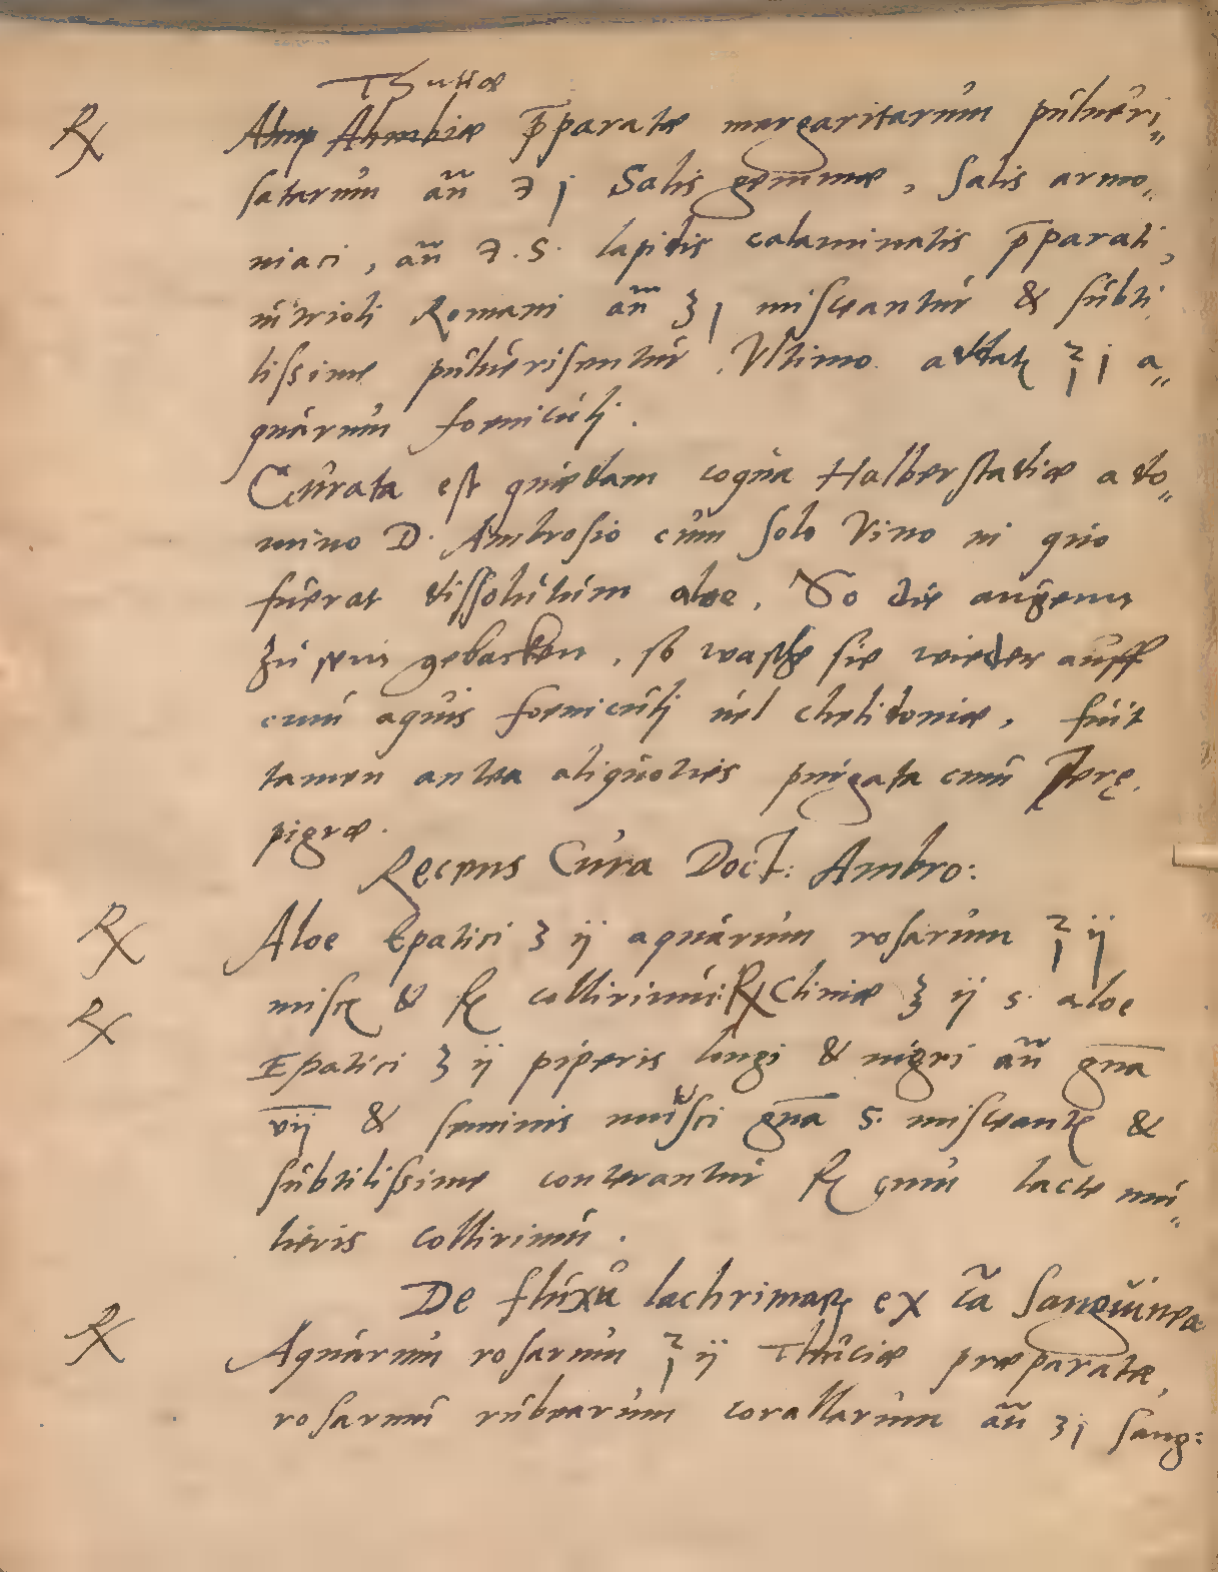 Thuttiæ
℞ p̄paratæ margaritarum pulueri〃
satarum añ ℈ j Salis gemmæ, Salis armo〃
niaci, añ ℈. S. lapidis calaminatis p̄parati,
uitrioli Romani añ ʒj misceantur & subti
lissime puluerisentur. Vltimo. ℥ j a〃
quarum foeniculj.
Curata est quædam coqua Halberstadiæ a do〃
mino D. Ambrosio cum solo Vino in quo
fuerat dissolutum aloe. So die augenn
zu sein gebacken, so wasche sie wieder auff
cum aquis foeniculj uel chelidoniæ, fuit
tamen antea aliquoties purgata cum Jerę
pigræ.
Recens Cura Doct: Ambro:
℞ Aloe Epatici ʒ ij aquarum rosarum ℥ ij
& collirium: ℞ ʒ ij s. aloe
℞ Epatici ʒ ij piperis longi & nigri añ gna
vij & seminis musci gna s. &
subtilissime conterantur cum lacte mu〃
lieris collirium.
De fluxu lachrimarꝝ ex cã sanguinea
℞ Aquarum rosarum ℥ ij Thuciæ præparatæ,
rosarum rubearum corallarum añ ʒj sang: